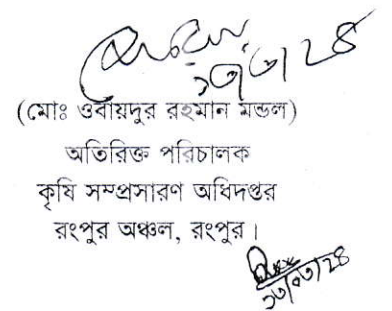 ১৩/৩/২৪
(মোঃ ওবায়দুর রহমান মন্ডল)
অতিরিক্ত পরিচালক
কৃষি সম্প্রসারণ অধিদপ্তর
রংপুর অঞ্চল, রংপুর।
১৩/০৩/২৪